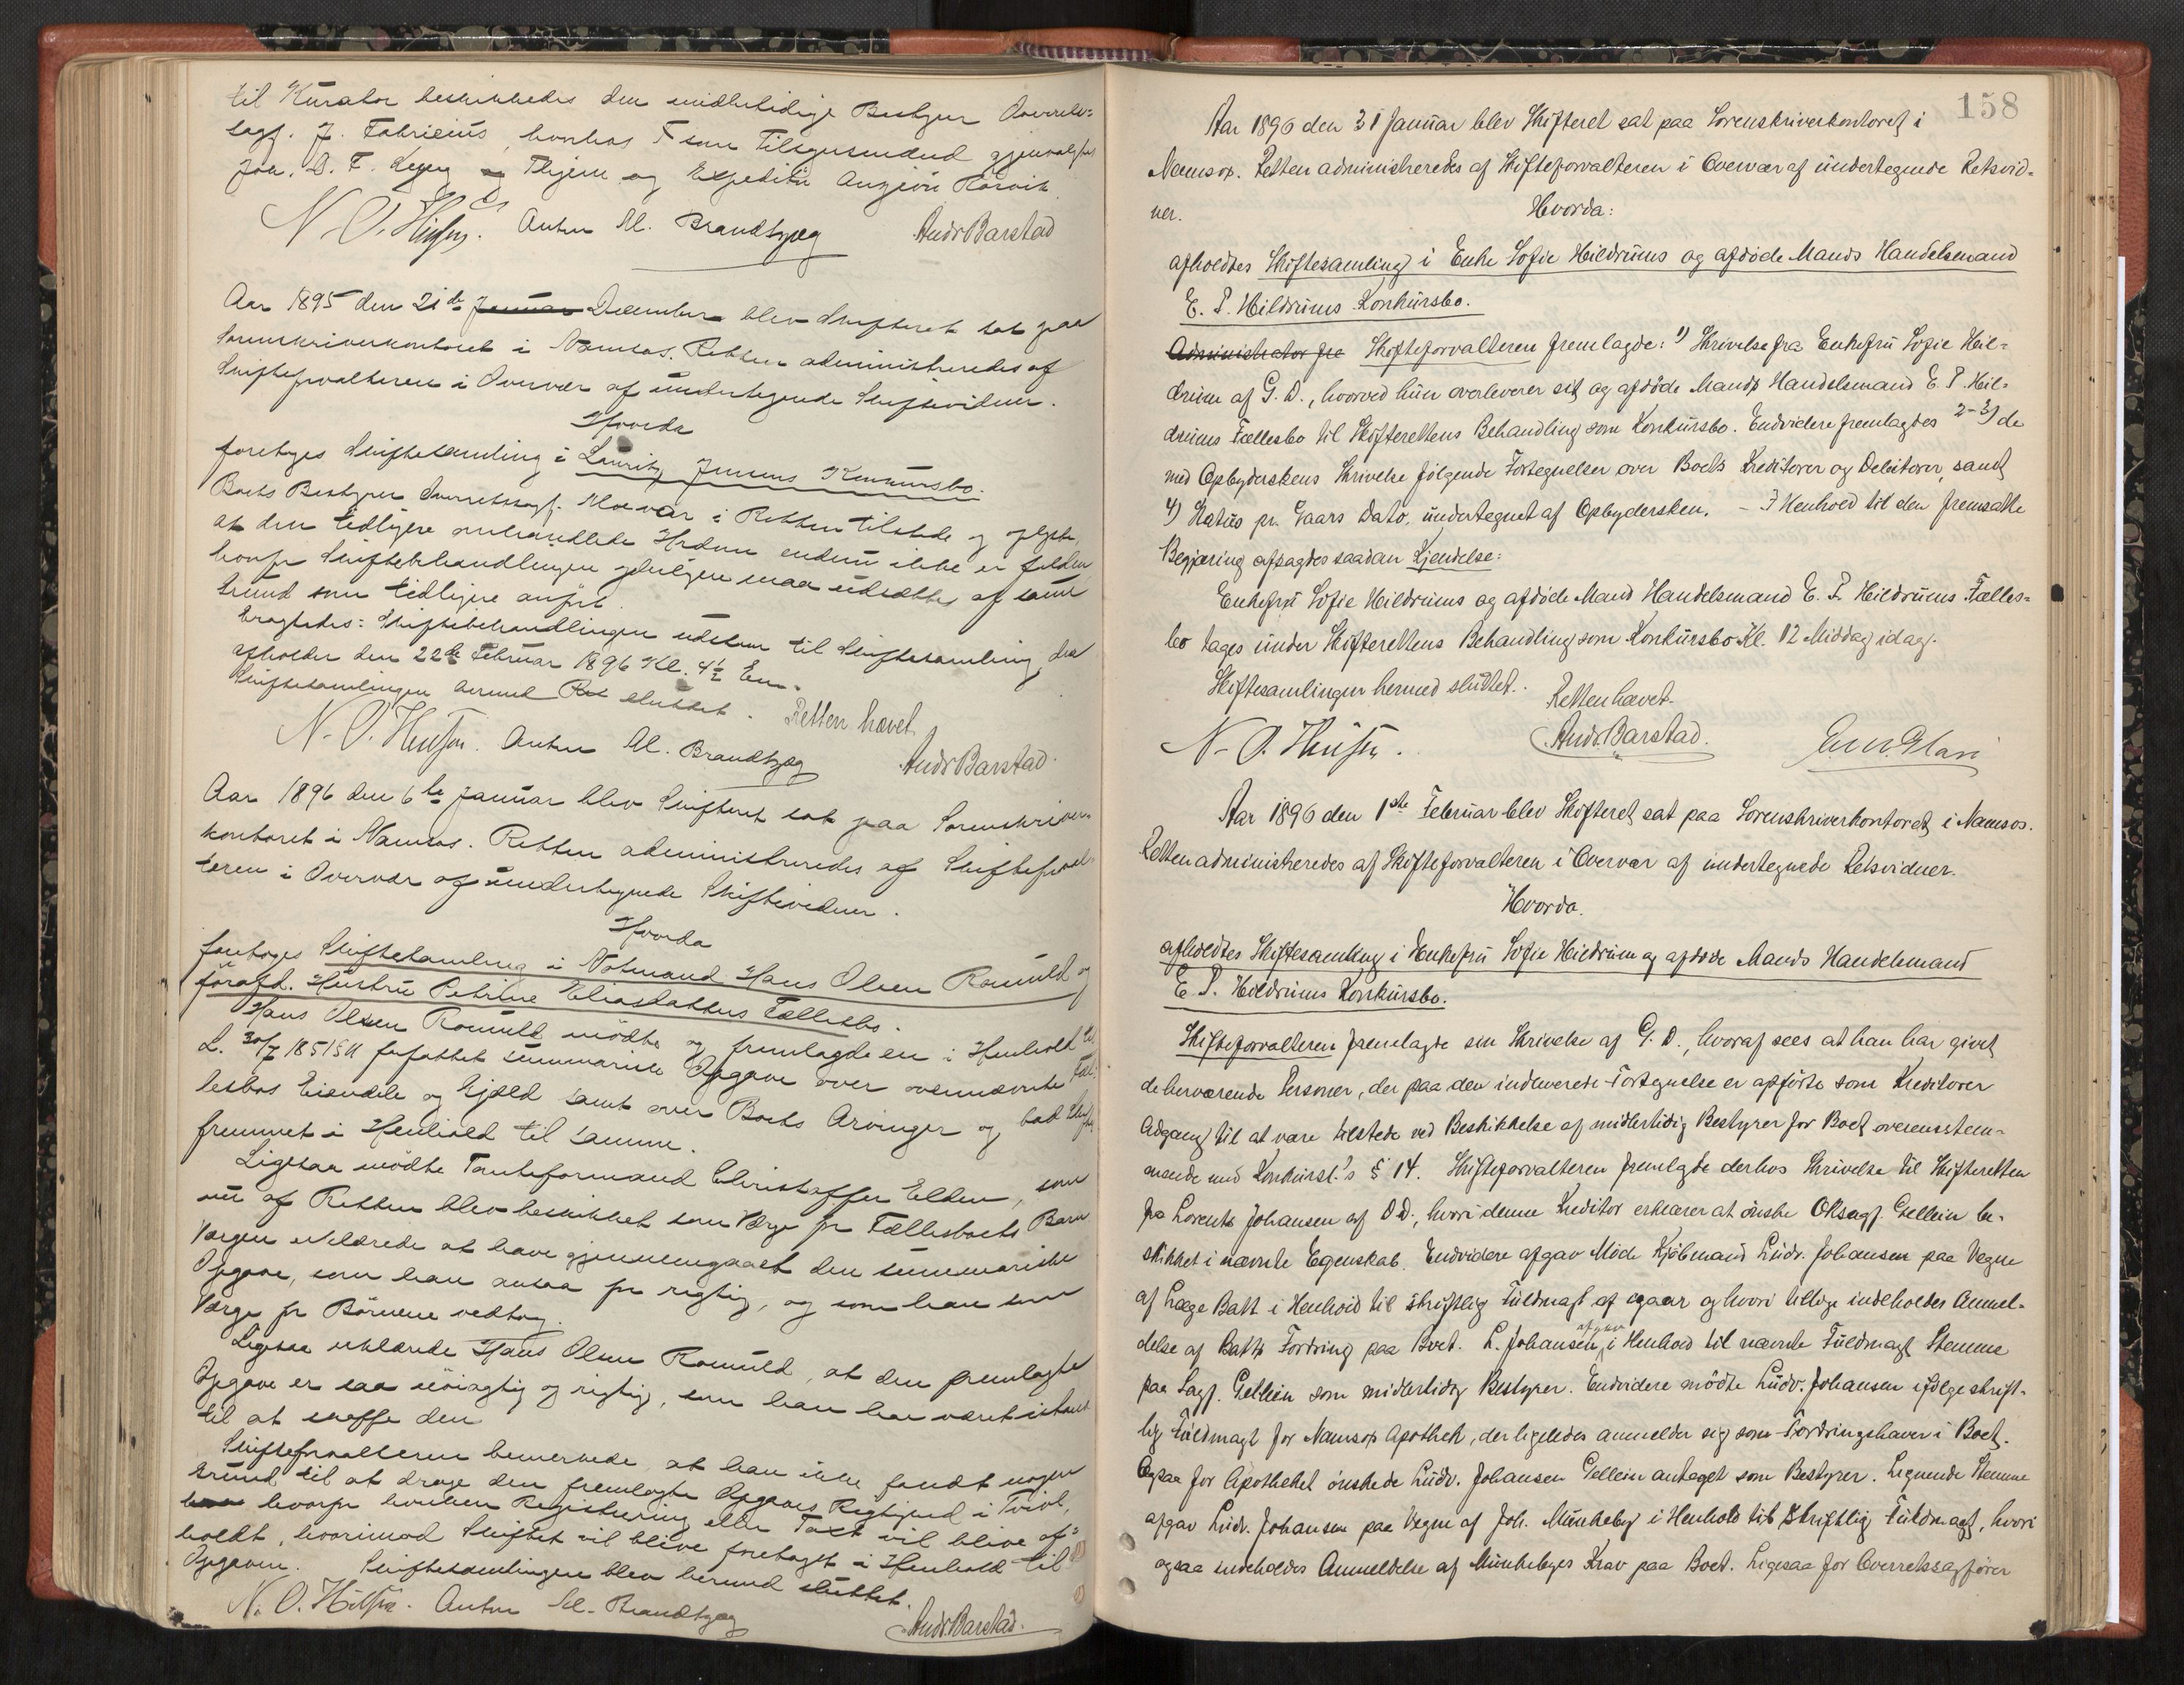 til Kurator beskikkedes den midlertidige Bestyrer Overrets=
sagf. J. Fabricius, hvorhos som Tilsynsmænd gjenvalgtes
Joh. D. F. og Expeditør Horvik
N. O. Anton M. Brandtzæg Andr Barstad
Aar 1895 den 21de Januar December blev Skifteret sat paa
Sorenskriverkontoret i Namsos. Retten administreredes af
Skifteforvalteren i Overvær af undertegnede Skiftevidner.
Hvorda
foretoges Skiftesamling i Lauritz Jensens Konkursbo.
Boets Bestyrer Overretssagf. var i Retten tilstede og oplyste,
at den tidligere omhandlede endnu ikke er falden
hvorfor Skiftebehandlingen yderligere maa udsættes af samme
Grund som tidligere anført.
Eragtedes: Skiftebehandlingen udstaar til Skiftesamling, der
afholdes den 22de Februar 1896 Kl. 4½ Em.
Skiftesamlingen hermed Ret sluttet. Retten hævet.
N. O. Anton M. Brandtzæg Andr Barstad
Aar 1896 den 6te Januar blev Skifteret sat paa Sorenskriver-
kontoret i Namsos. Retten administreredes af Skifteforval-
teren i Overvær af undertegnede Skiftevidner.
Hvorda
foretoges Skiftesamling i Notmand Hans Olsen Romuld og
forafd. Hustru Petrine Eliasdatters Fællesbo.
Hans Olsen Romuld mødte og fremlagde en i Henhold til
L. 30/7 1851 § 11 forfattet summarisk Opgave over ovennævnte Fæl-
lesbos Eiendele og Gjæld samt over Boets Arvinger og bad Skiftet
fremmet i Henhold til samme.
Ligesaa mødte Tomteformand Christoffer Elden, som
nu af Retten blev beskikket som Værge for Fællesboets Børn
Værgen erklærede at have gjennemgaaet den summariske
Opgave, som han ansaa for rigtig, og som han som
Værge for Børnene vedtog.
Ligesaa erklærede Hans Olsen Romuld, at den fremlagte
Opgave er saa nøiagtig og rigtig, som han har været istand
til at skaffe den
Skifteforvalteren bemerkede, at han ikke fandt nogen
Grund til at drage den fremlagte Opgaves Rigtighed i Tvivl,
hvorfor hverken Registrering eller Taxt vil blive af=
holdt, hvorimod Skiftet vil blive foretaget i Henhold til
Opgaven. Skiftesamlingen blev hermed sluttet.
N. O. Anton M. Brandtzæg Andr. Barstad.
158
Aar 1896 den 31 Januar blev Skifteret sat paa Sorenskriverkontoret i
Namsos. Retten administreredes af Skifteforvalteren i Overvær af undertegnede Retsvid-
ner. Hvorda:
afholdtes Skiftesamling i Enke Sofie Hildrums og afdøde Mands Handelsmand
E. P. Hildrums Konkursbo.
Administrator fre Skifteforvalteren fremlagde: 1) Skrivelse fra Enkefru Sofie Hil=
drum af G. D., hvorved hun overleverer sit og afdøde Mands Handelsmand E. P. Hil=
drums Fællesbo til Skifterettens Behandling som Konkursbo. Endvidere fremlagdes 2-3) de
med Opbyderskens Skrivelse følgende Fortegnelser over Boets Kreditorer og Debitorer, samt
4) Status pr. Gaars Dato, undertegnet af Opbydersken. – I Henhold til den fremsatte
Begjæring afsagdes saadan Kjendelse:
Enkefru Sofie Hildrums og afdøde Mand Handelsmand E. P. Hildrums Fælles=
bo tages under Skifterettens Behandling som Konkursbo Kl. 12 Middag idag.
Skiftesamlingen hermed sluttet. Retten hævet.
N. O. Andr. Barstad.
Aar 1896 den 1ste Februar blev Skifteret sat paa Sorenskriverkontoret i Namsos.
Retten administreredes af Skifteforvalteren i Overvær af undertegnede Retsvidner.
Hvorda.
afholdtes Skiftesamling i Enkefru Sofie Hildrum og afdøde Mands Handelsmand
E. P. Hildrums Konkursbo.
Skifteforvalteren fremlagde sin Skrivelse af G. D., hvoraf sees at han har givet
de herværende Personer, der paa den indleverede Fortegnelse er opførte som Kreditorer
Adgang til at være tilstede ved Beskikkelse af midlertidig Bestyrer for Boet overensstem-
mende med Konkursl.'s § 14. Skifteforvalteren fremlagde derhos Skrivelse til Skifteretten
fra Lorents Johansen af D.D., hvori denne Kreditor erklærer at ønske ORsagf. Gellein be-
skikket i nævnte Egenskab. Endvidere afgav Møde Kjøbmand Ludv. Johansen paa Vegne
af Læge Batt i Henhold til skriftlig Fuldmagt af igaar og hvori tillige indeholdes Anmel-
delse af Batts Fordring paa Boet. L. Johansen afgav i Henhold til nævnte Fuldmagt Stemme
paa Sagf. Gellein som midlertidig Bestyrer. Endvidere mødte Ludv. Johansen ifølge skrift-
lig Fuldmagt for Namsos Apothek, der ligeledes anmelder sig som Fordringshaver i Boet.
Ogsaa for Apotheket ønskede Ludv. Johansen Gellein antaget som Bestyrer. Lignende Stemme
afgav Ludv. Johansen paa Vegne af Joh. Munkeby i Henhold til Skriftlig Fuldmagt, hvori
ogsaa indeholdes Anmeldelse af Munkebyes Krav paa Boet. Ligesaa for Overretssagfører